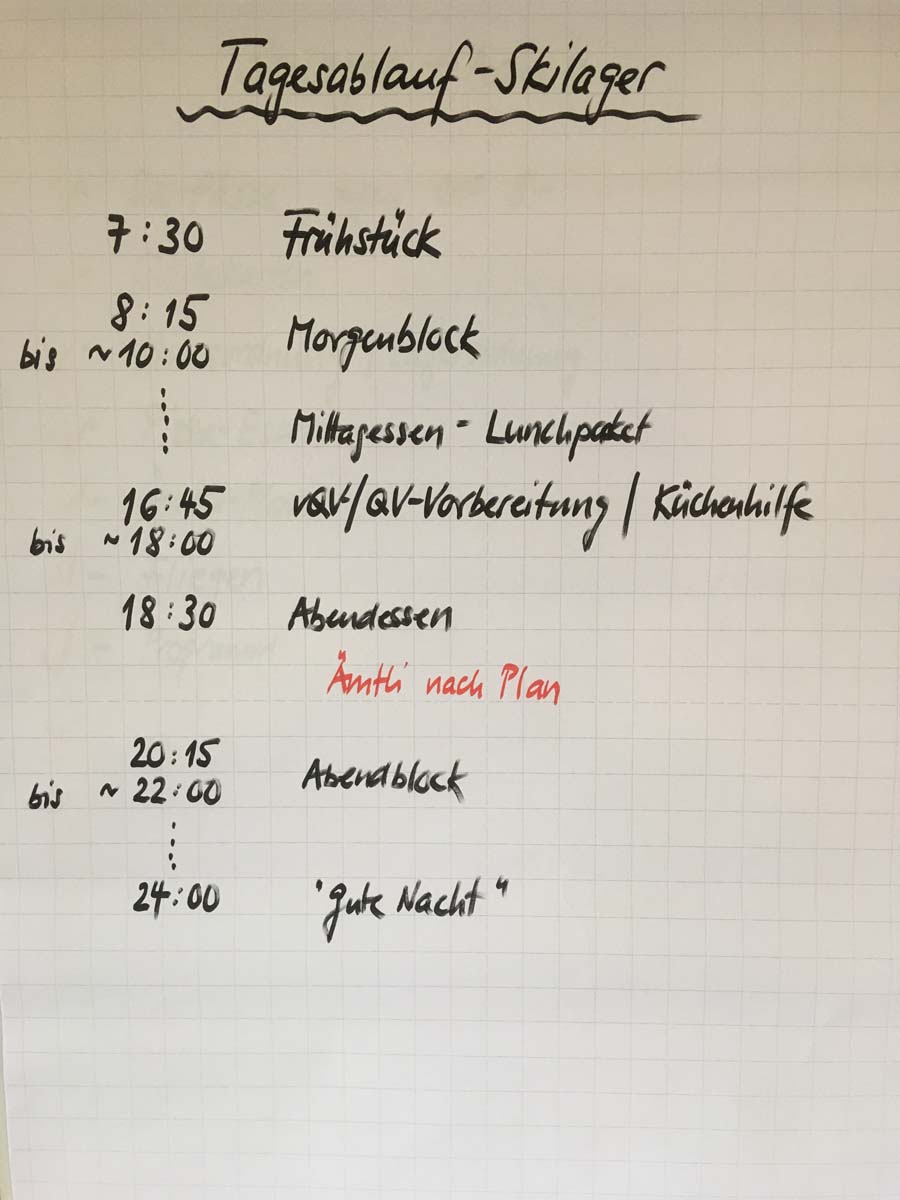 Tagesablauf-Skilager
7:30 Frühstück
8:15
bis ~10:00 Morgenblock
Mittagessen - Lunchpaket
16:45 vQV/QV-Vorbereitung / Küchenhilfe
bis ~18:00
18:30 Abendessen
Ämtli nach Plan
20:15
bis ~22:00 Abendblock
24:00 "gute Nacht"